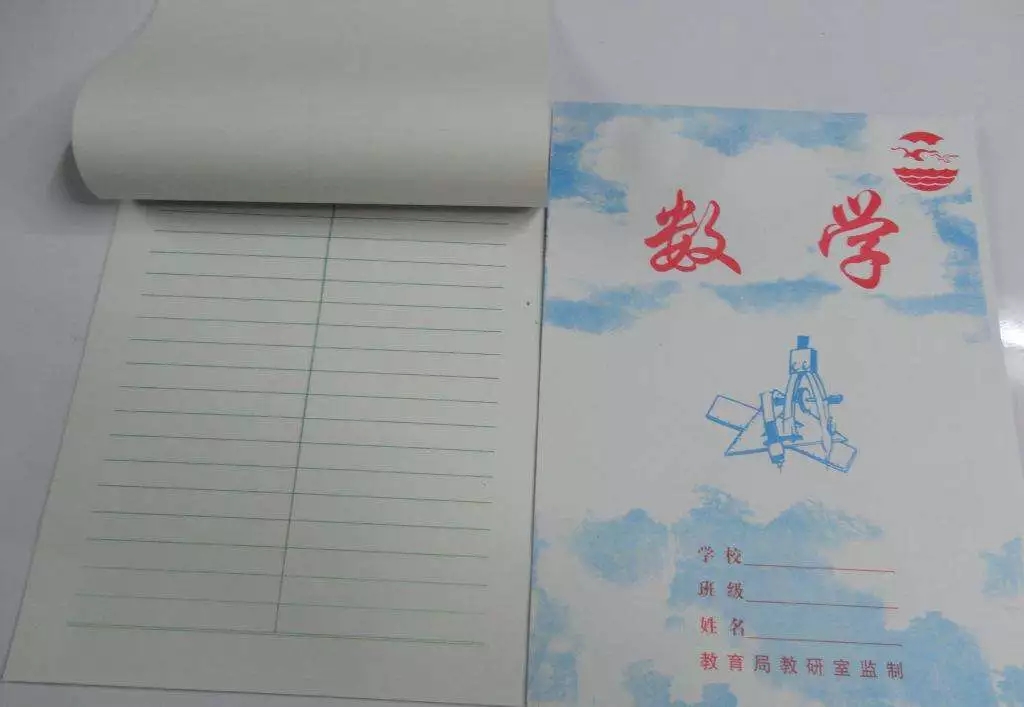 数学
学校
班级
姓名
教育局教研室监制